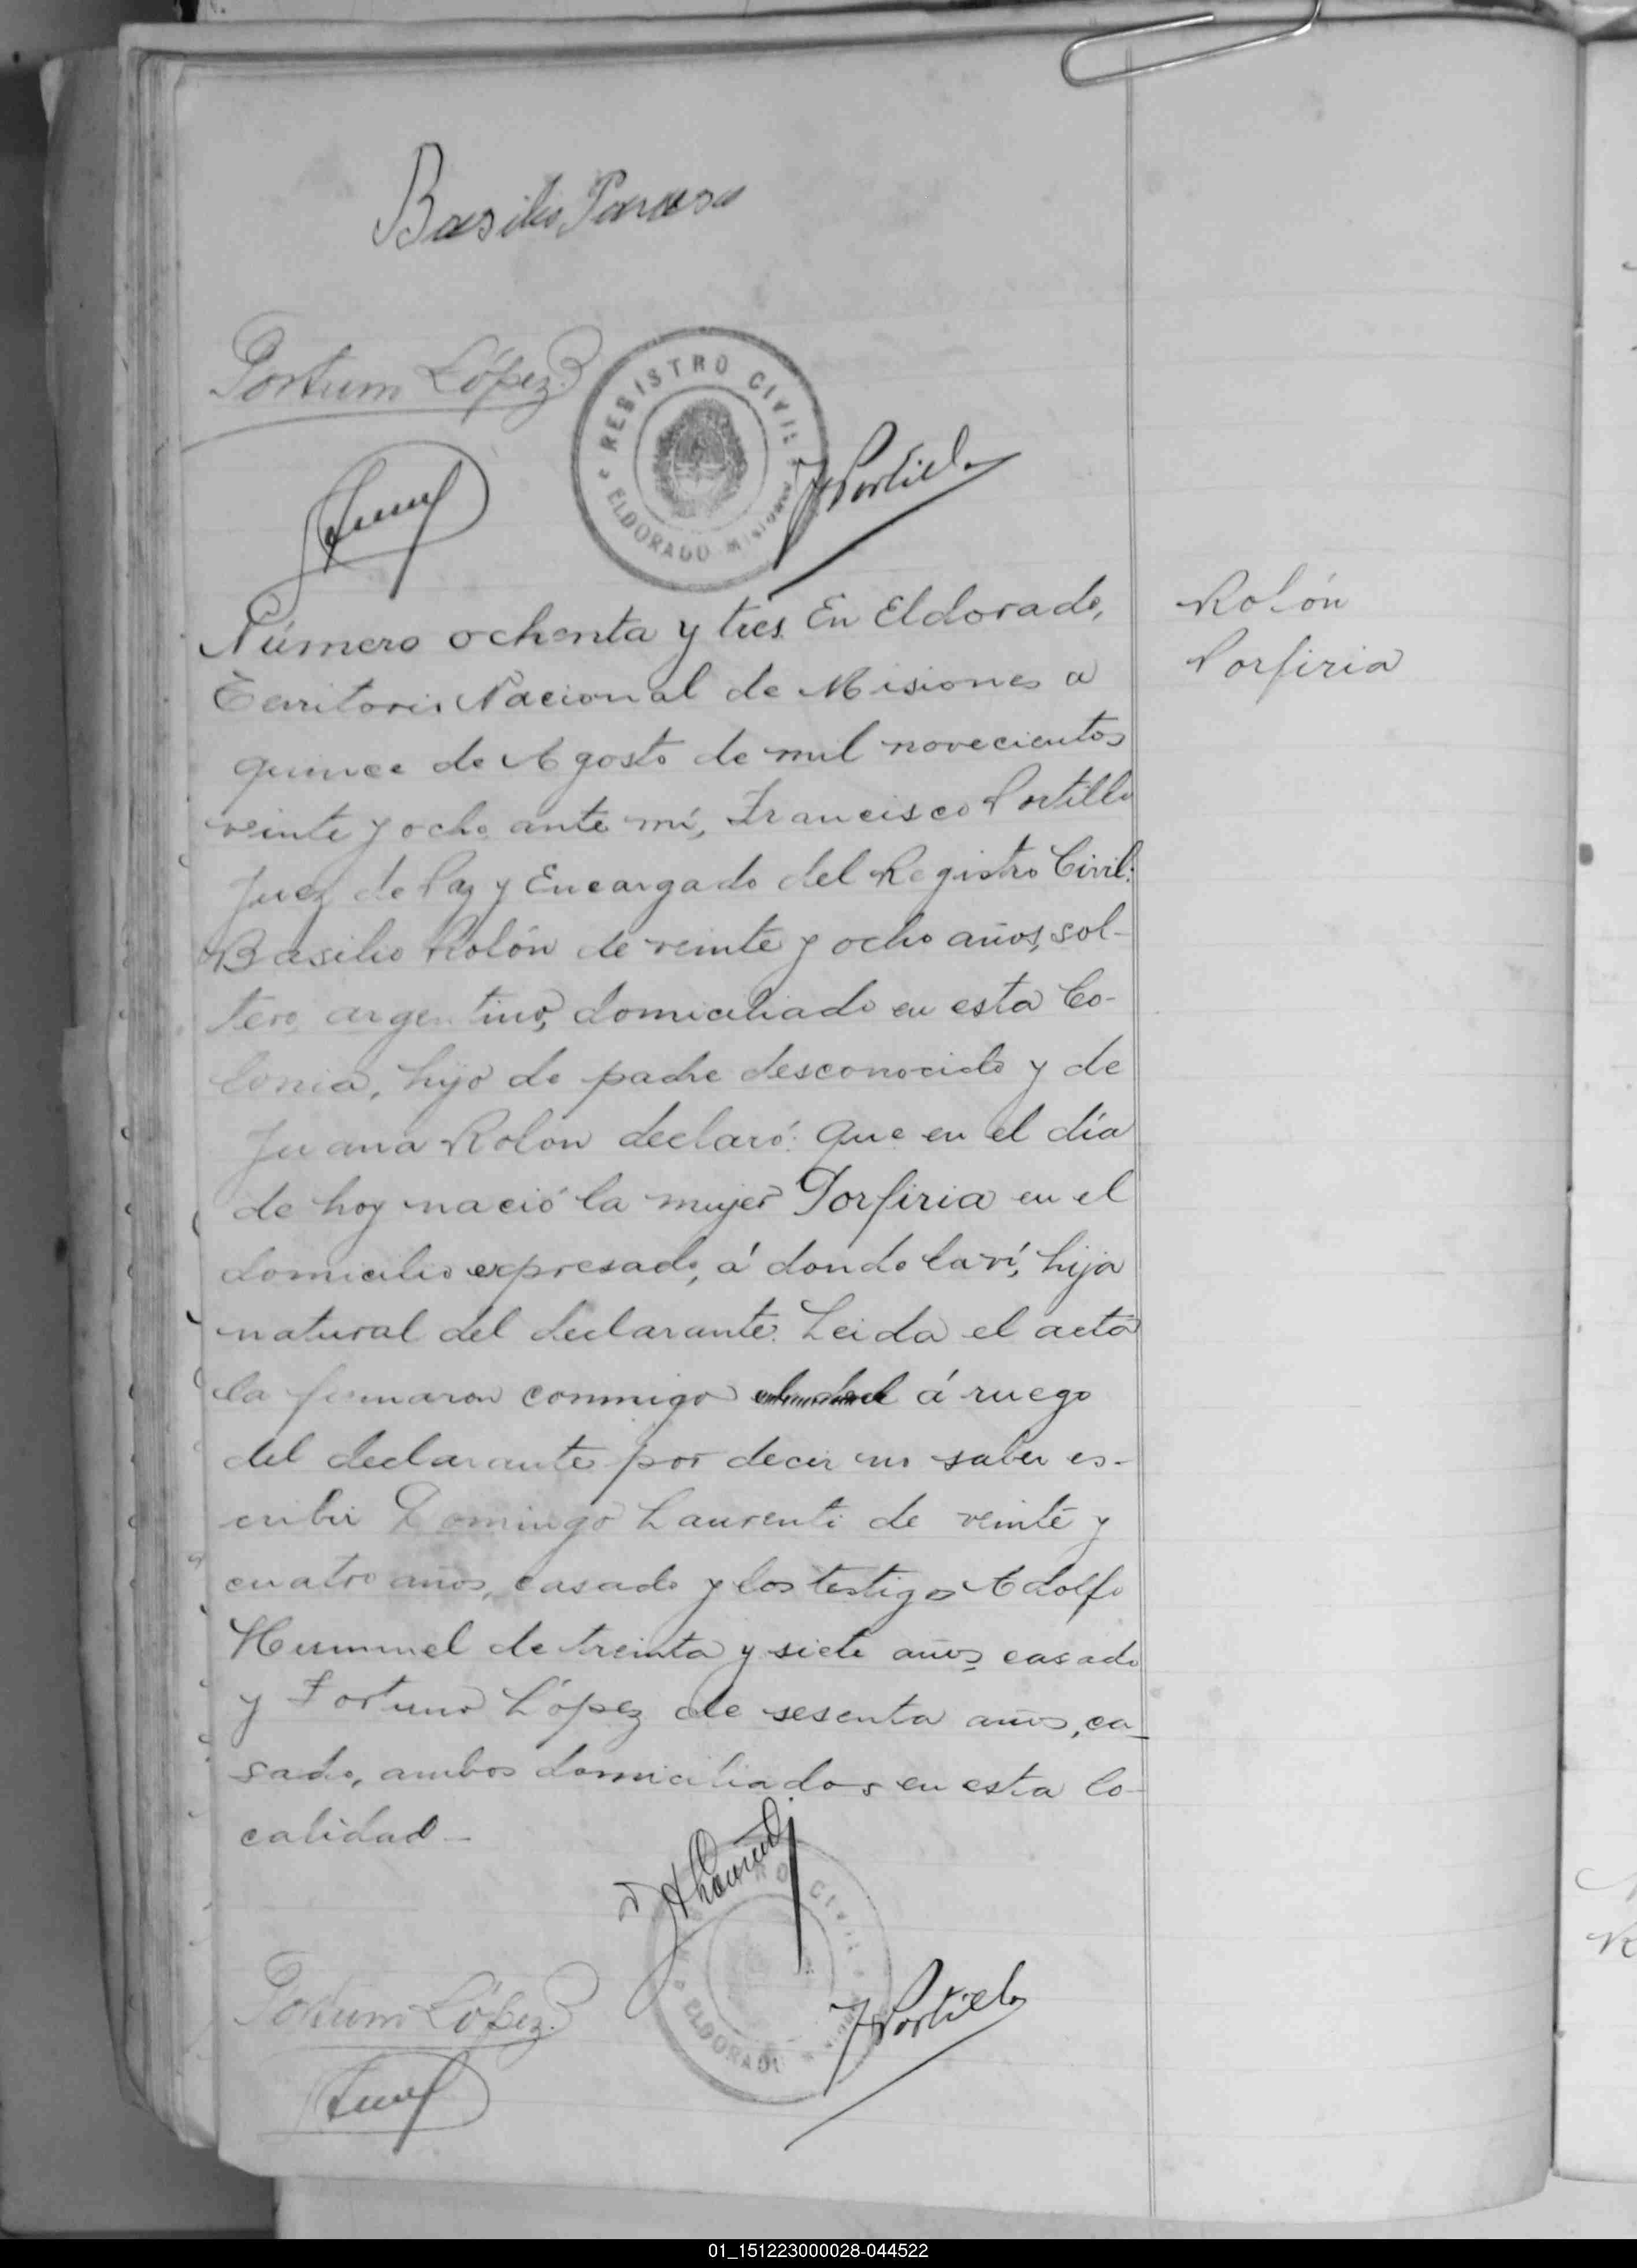 Basilio
Fortun López
REGISTRO CIVIL
ELDORADO MISIONES
F Portillo
Número ochenta y tres En Eldorado,
Territorio Nacional de Misiones a
quince de Agosto de mil novecientos
veinte y ocho ante mí, Francisco Portillo
Juez de Paz y Encargado del Registro Civil:
Basilio Rolón de veinte y ocho años, sol-
tero argentino, domiciliado en esta Co-
lonia, hijo de padre desconocido y de
Juana Rolon declaró: Que en el día
de hoy nació la mujer Porfiria en el
domicilio expresado, á donde la ví, hija
natural del declarante. Leida el acta
la firmaron conmigo á ruego
del declarante por decir no saber es-
cribir Domingo Laurenti de veinte y
cuatro años, casado y los testigos Adolfo
Hummel de treinta y siete años, casado
y Fortuno López de sesenta años, ca-
sado, ambos domiciliados en esta lo-
calidad -
Rolón
Porfiria
CIVIL
ELDORADO
Fortun López
F Portillo
01_151223000028-044522